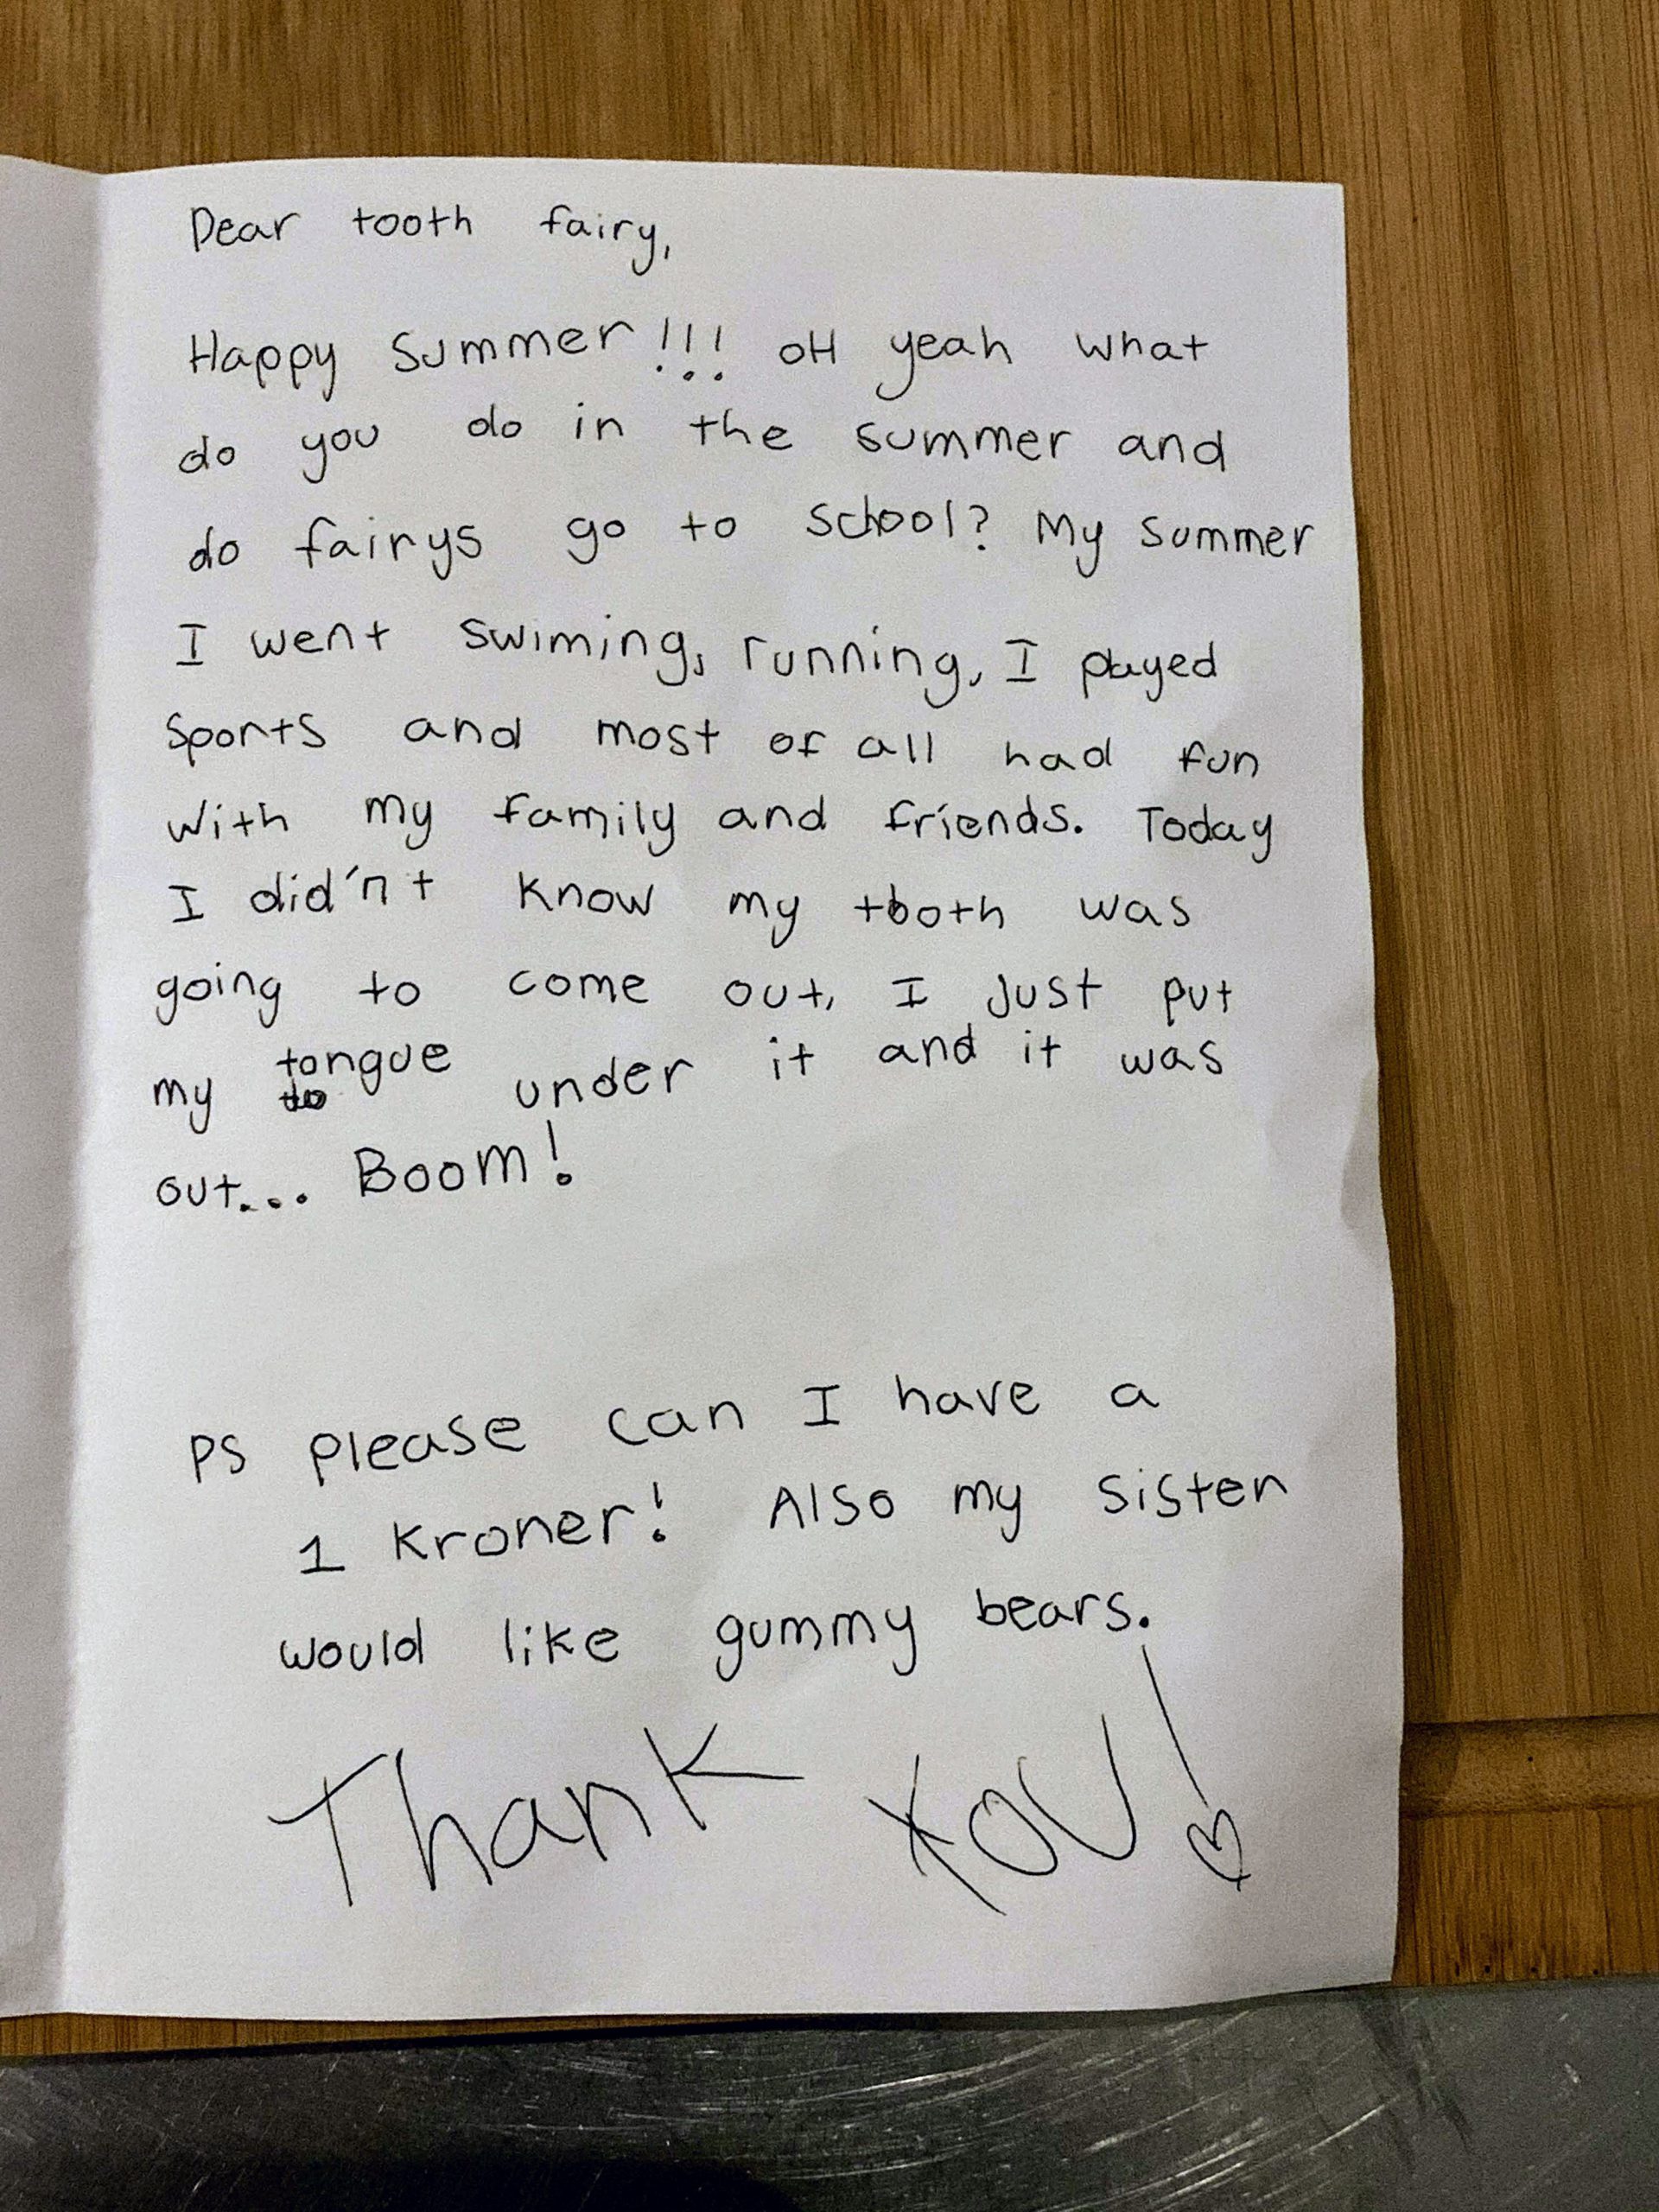 Dear tooth fairy,
Happy Summer!!! oH yeah what
do you do in the summer and
do fairys go to school? My summer
I went swiming, running, I played
sports and most of all had fun
with my family and friends. Today
I did'nt know my tooth was
going to come out, I just put
my tongue under it and it was
out... Boom!
PS please can I have a
1 kroner! Also my sister
would like gummy bears.
Thank YOU!